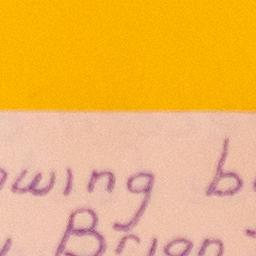 owing b
Brian